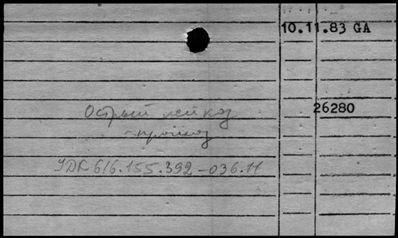 10.11.83 GA
26280
Острый лейкоз
УДК 616.155.392-036.11